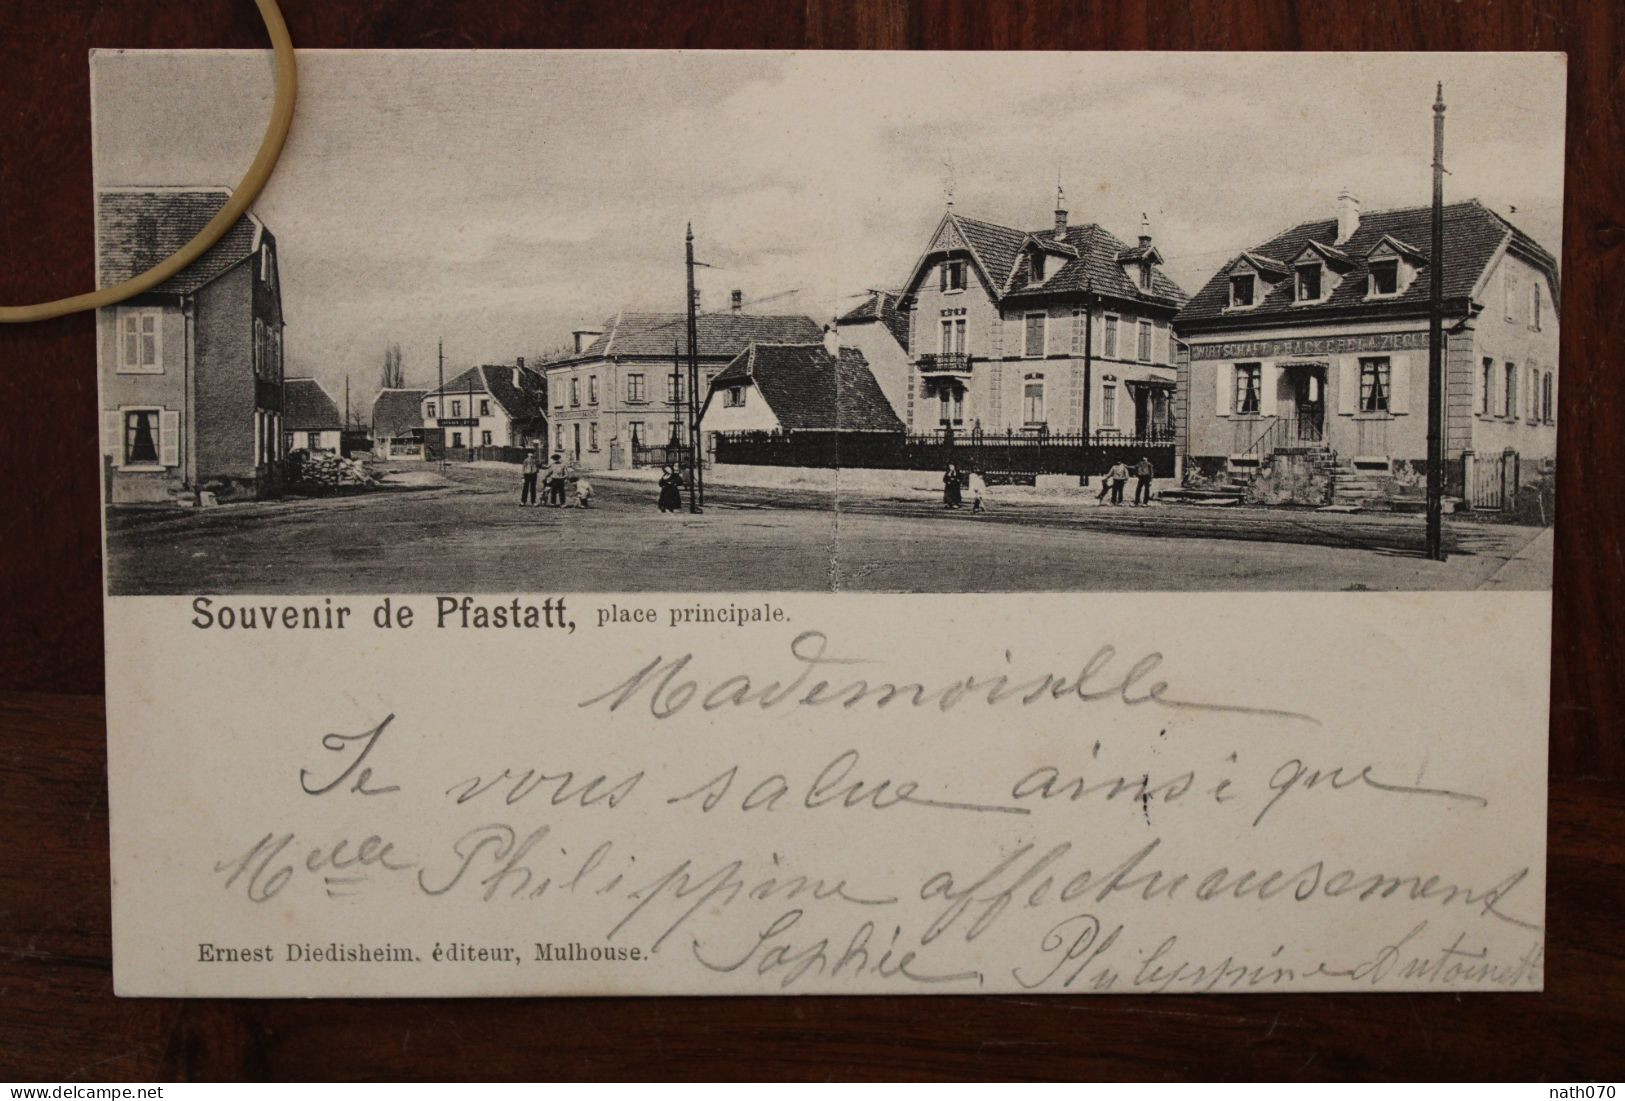 WIRTSCHAFT & BÄCKEREI A. ZIEGLE
Souvenir de Pfastatt, place principale.
Mademoiselle
Je vous salue ainsi que
Melle Philippine affectueusement
Ernest Diedisheim, éditeur, Mulhouse.
Sophie, Philippine Antoinette
nath070